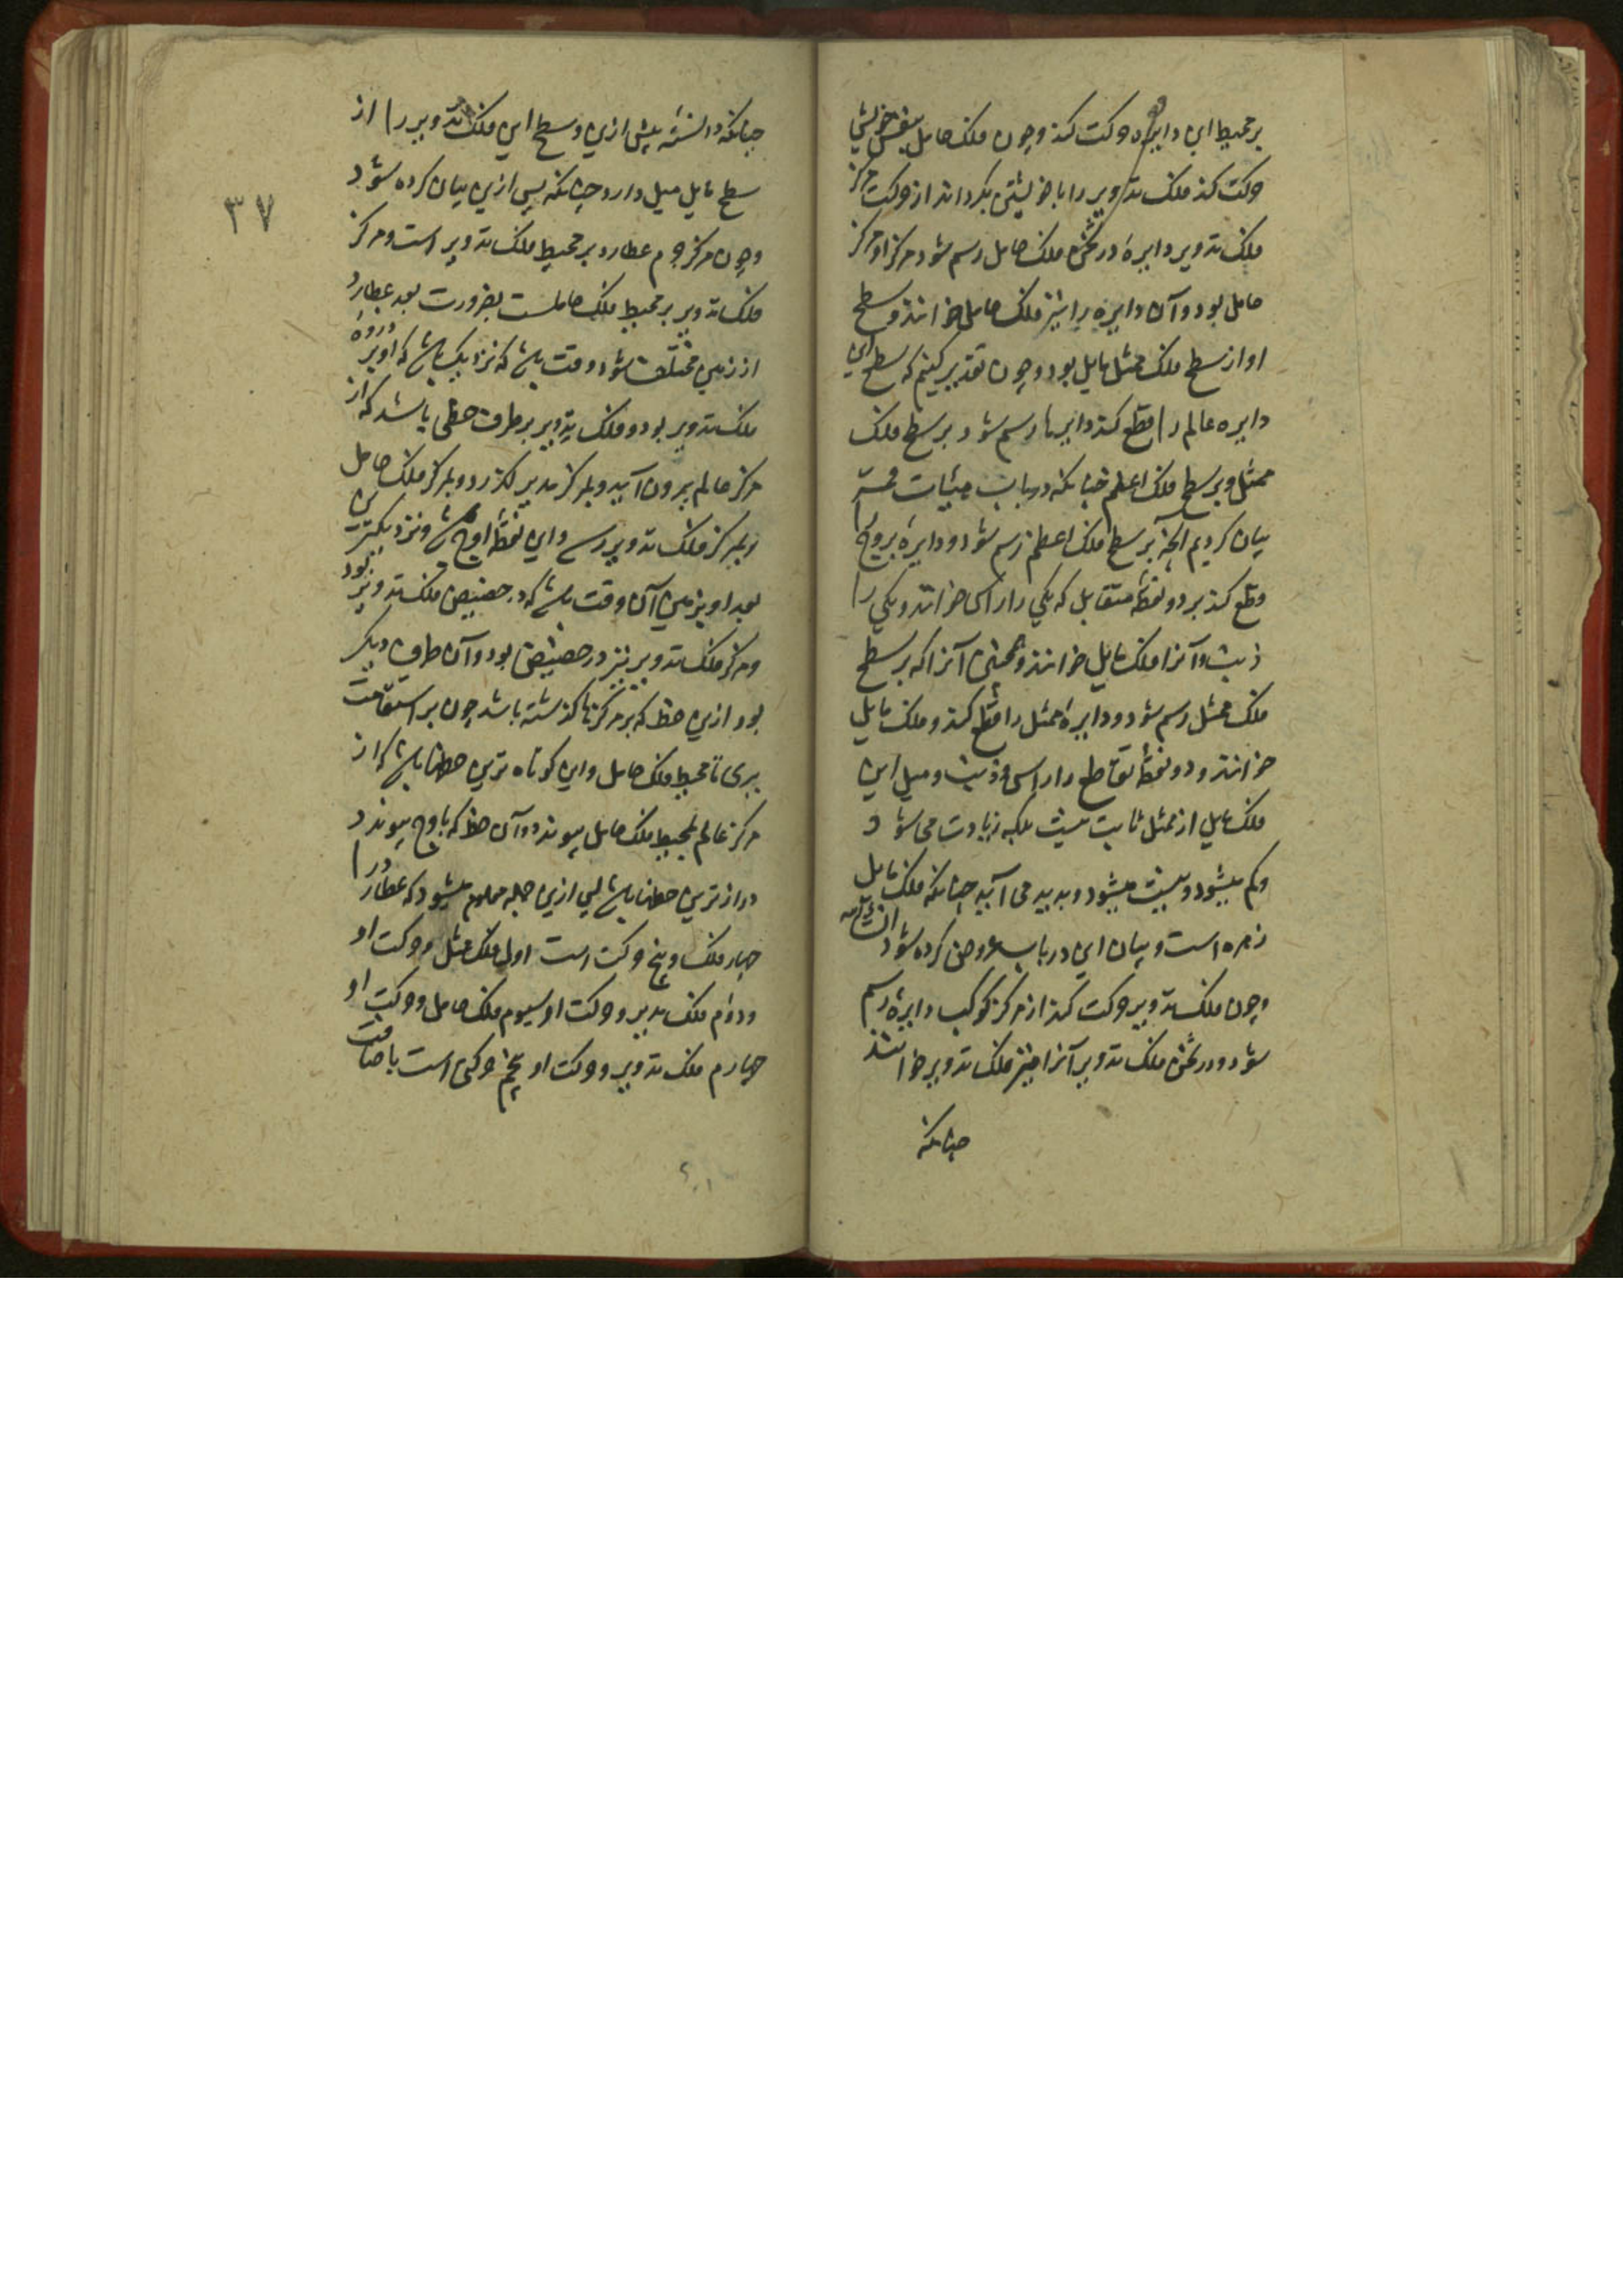 بر محیط این دایره حرکت کند و چون فلک حامل بنفس خویش
حرکت کند فلک تدویر را با خویشتن بگرداند از حرکت مرکز
فلک تدویر دایرهٔ در ثخن فلک حامل رسم شود مرکز او مرکز
حامل بود و آن دایره را نیز فلک حامل خوانند و سطح
او از سطح فلک ممثل مایل بود و چون تقدیر کنیم که سطح این
دایره عالم را قطع کند دایرها رسم شود بر سطح فلک
ممثل و بر سطح فلک اعظم چنانکه در باب هیئات
بیان کردیم آنچه بر سطح فلک اعظم رسم شود دایرهٔ بروج را
قطع کند بر دو نقطهٔ متقابل که یکی را راس خوانند و یکی را
ذنب و آنرا فلک مایل خوانند و همچنین آنرا که بر سطح
فلک ممثل رسم شود و دایرهٔ ممثل را قطع کند و فلک مایل
خوانند و دو نقطهٔ تقاطع را راس و ذنب و میل این
فلک مایل از ممثل ثابت نیست بلکه زیادت می شود
وکم میشود و نیست میشود و پدید می آید چنانکه فلک مایل
زهره است و بیان این در باب عروض کرده شود ان شاء الله
و چون فلک تدویر حرکت کند از مرکز کوکب دایرهٔ رسم
شود در ثخن فلک تدویر آنرا نیز فلک تدویر خوانند
چنانکه
٣٧
چنانکه دانسته پیش ازین و سطح این فلک تدویر را از
سطح مایل میل دارد چنانکه پس ازین بیان کرده شود
و چون مرکز جرم عطارد بر محیط فلک تدویر است و مرکز
فلک تدویر بر محیط فلک حاملست بضرورت بعد عطارد
از زمین مختلف شود وقت باشد که نزدیک باشد که او بر ذروهٔ
فلک تدویر بود و فلک تدویر بر طرف خطی باشد که از
مرکز عالم بیرون آید و بمرکز مدیر بگذرد و بمرکز فلک حامل
و بمرکز فلک تدویر رسد و این نقطهٔ اوج باشد و نزدیکترین
بعد او بزمین آن وقت باشد که در حضیض فلک تدویر بود
و مرکز فلک تدویر نیز در حضیض بود و آن طرف دیگر
بود ازین خط که بر مرکزها گذشته باشد چون بر استقامت
بری تا محیط فلک حامل و این کوتاه ترین خطها باشد که از
مرکز عالم بمحیط فلک حامل پیوندد و آن خط که باوج پیوندد
درازترین خطها باشد پس ازین جمله معلوم میشود که عطارد را
چهار فلک و پنج حرکت است اول فلک ممثل و حرکت او
و دوم فلک مدیر و حرکت او سیوم فلک حامل و حرکت او
چهارم فلک تدویر و حرکت او پنجم حرکتی است باضافت